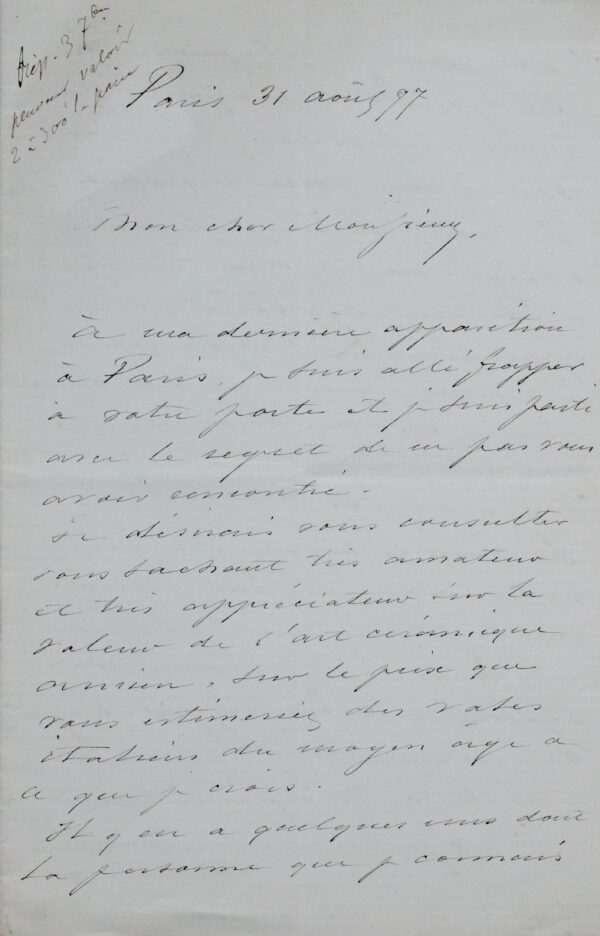 Rép. 3 7bre
peuvent valoir
2 à 300 f. la paire
Paris 31 août 97
Mon cher Monsieur,
à ma dernière apparition
à Paris, je suis allé frapper
à votre porte et je suis parti
avec le regret de ne pas vous
avoir rencontré.
Je désirais vous consulter
vous sachant très amateur
et très appréciateur sur la
valeur de l'art céramique
ancien, sur le prix que
vous estimeriez des vases
italiens du moyen âge à
ce que je crois.
Il y en a quelques uns dont
la personne que je connais